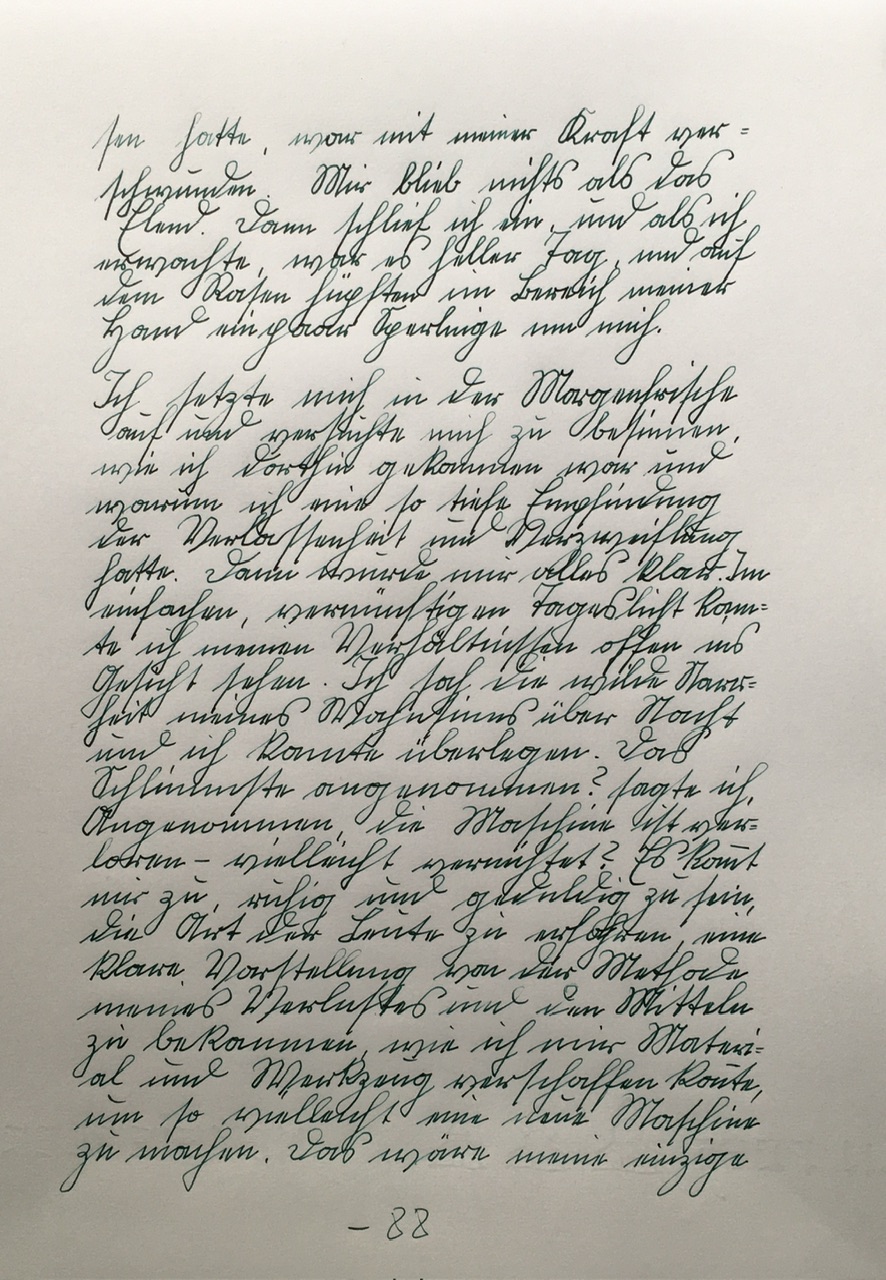 sen hatte, war mit meiner Kraft ver=
schwunden. Mir blieb nichts als das
Elend. Dann schlief ich ein, und als ich
erwachte, war es heller Tag, und auf
dem Rasen hüpften im Bereich meiner
Hand ein paar Sperlinge um mich.
Ich setzte mich in der Morgenfrische
auf und versuchte mich zu besinnen,
wie ich dorthin gekommen war und
warum ich eine so tiefe Empfindung
der Verlassenheit und Verzweiflung
hatte. Dann wurde mir alles klar. Im
einfachen, vernünftigen Tageslicht konn=
te ich meinen Verhältnissen offen ins
Gesicht sehen. Ich sah die wilde Narr=
heit meines Wahnsinns über Nacht
und ich konnte überlegen. Das
Schlimmste angenommen? sagte ich,
Angenommen, die Maschine ist ver=
loren – vielleicht vernichtet? Es kommt
mir zu, ruhig und geduldig zu sein,
die Art der Leute zu erfahren, eine
klare Vorstellung von der Methode
meines Verlustes und den Mitteln
zu bekommen, wie ich mir Materi=
al und Werkzeug verschaffen könnte,
um so vielleicht eine neue Maschine
zu machen. Das wäre meine einzige
– 88